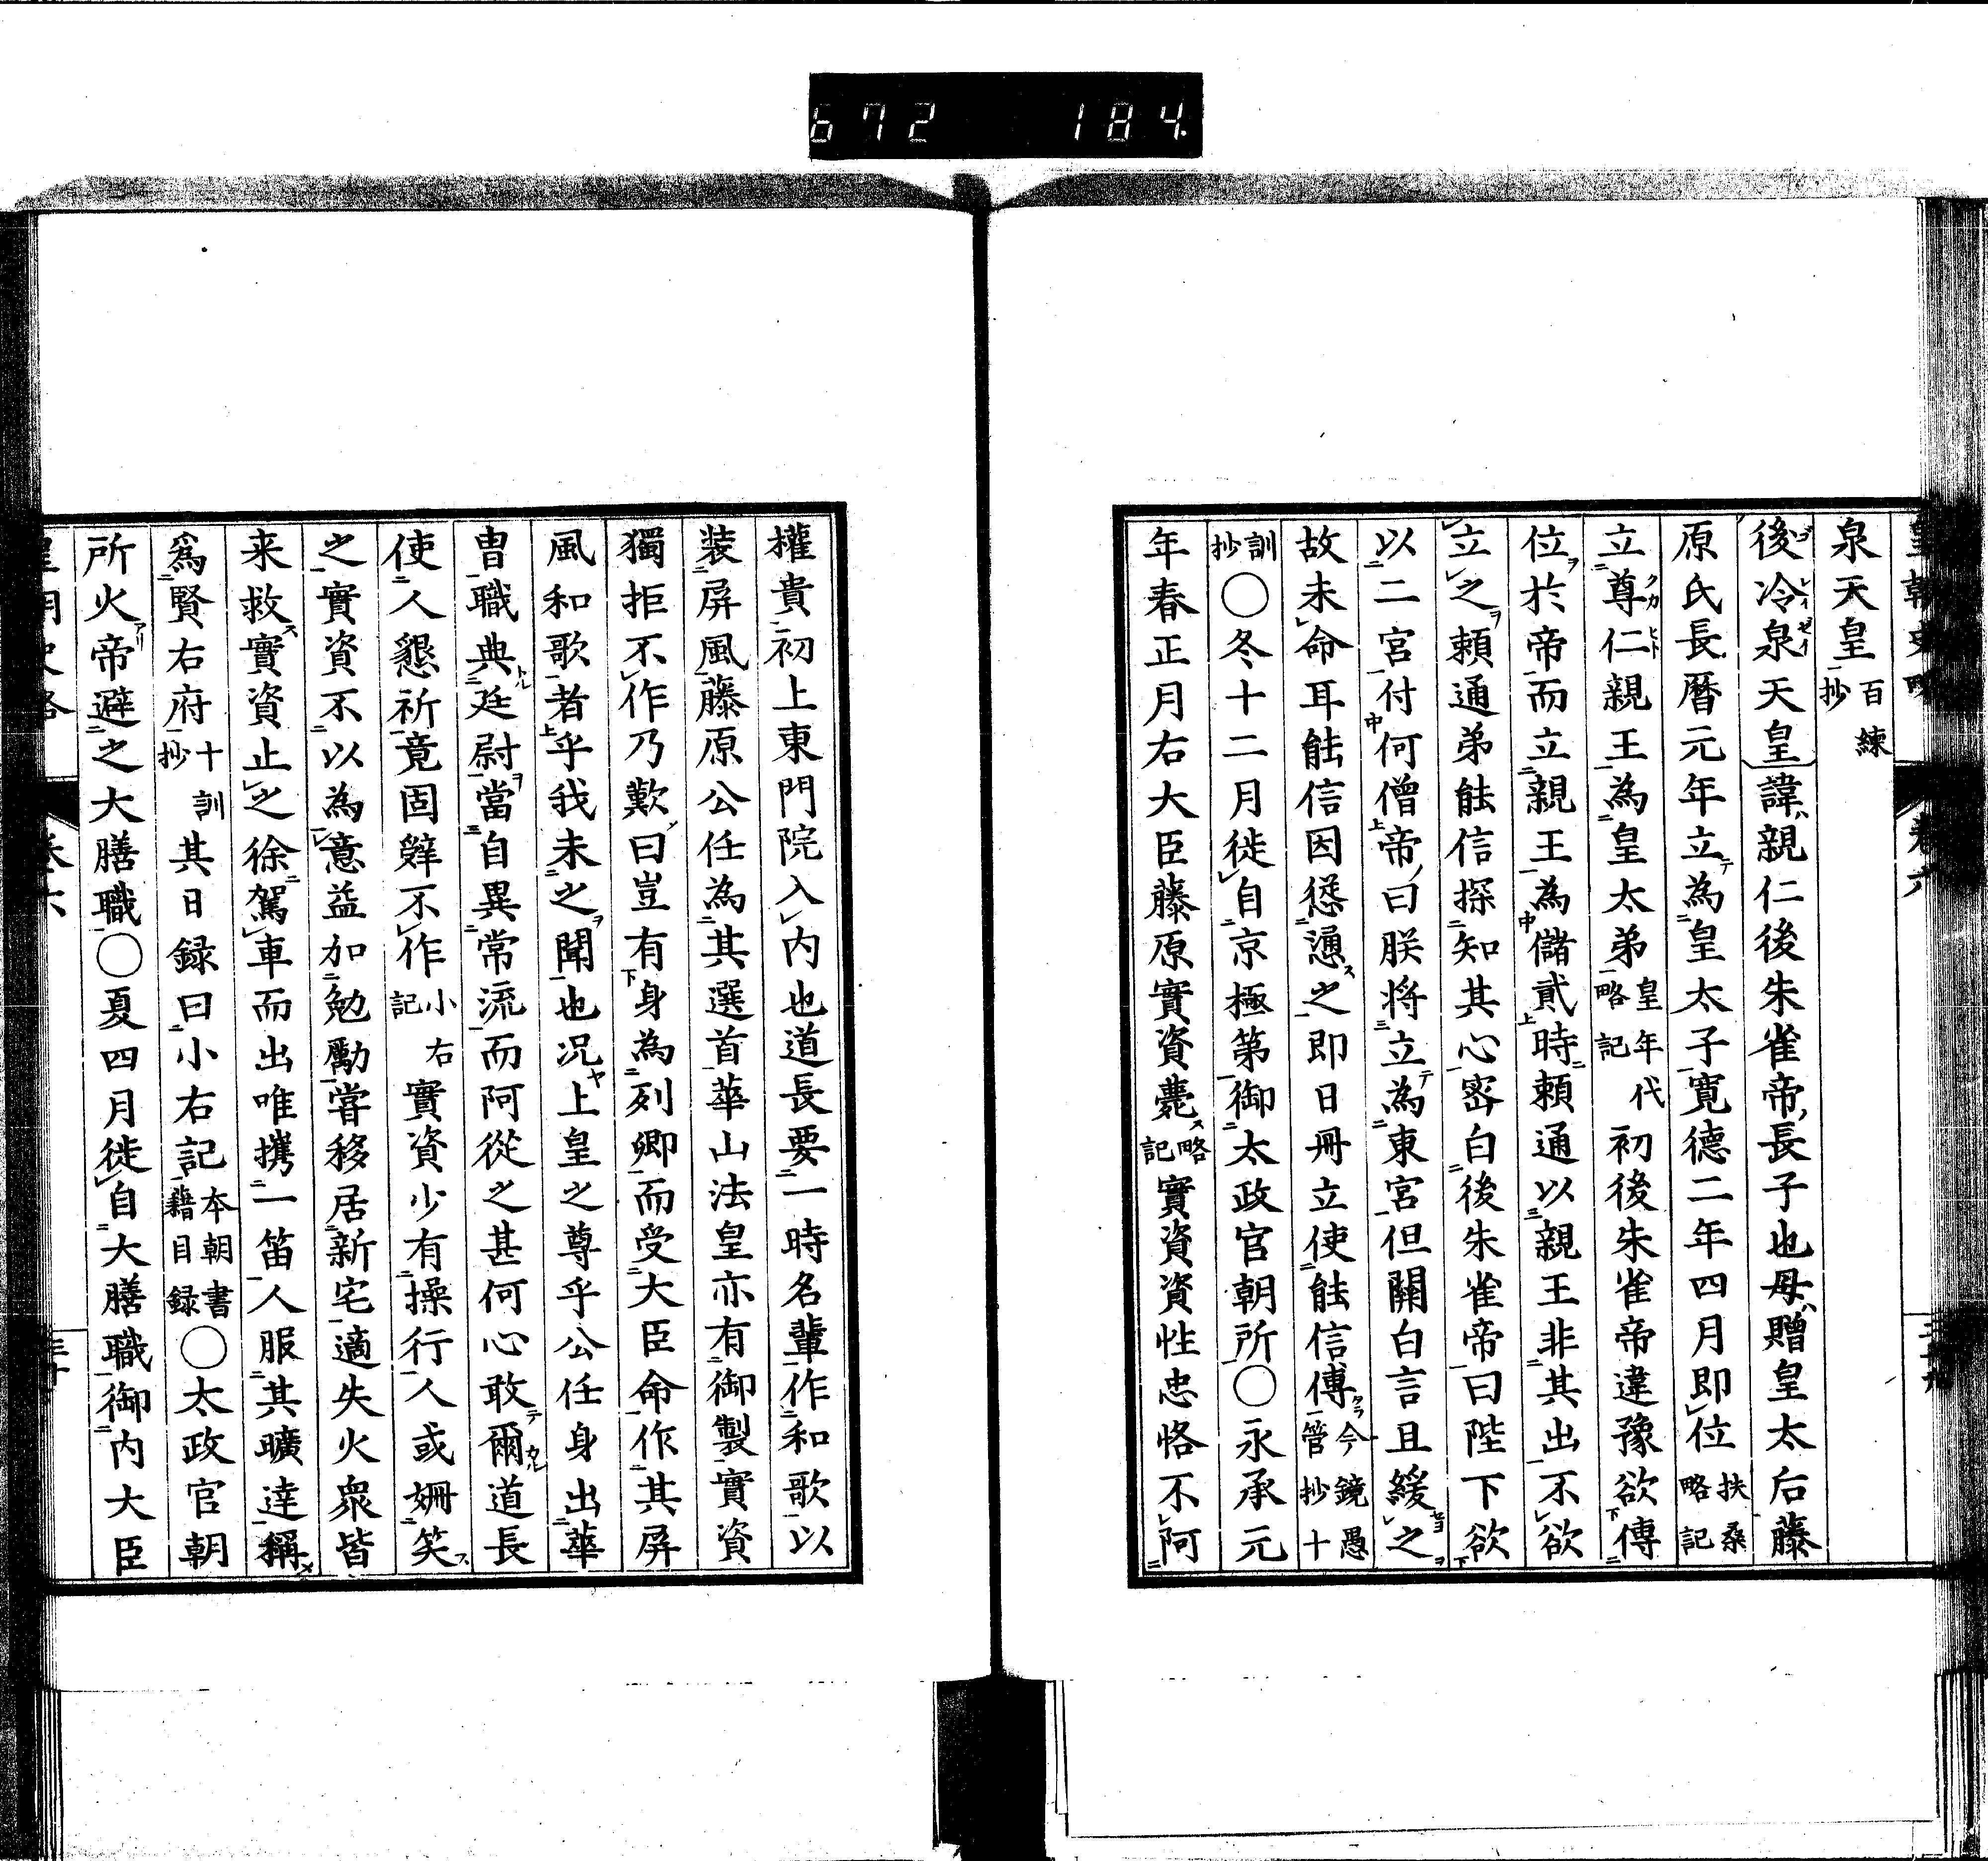 672 184
泉天皇百練抄
後冷泉天皇諱親仁後朱雀帝長子也母贈皇太后藤
原氏長曆元年立為皇太子寛德二年四月即位扶桑略記
立尊仁親王為皇太弟皇年代略記初後朱雀帝違豫欲傳
位於帝而立親王為儲貳時頼通以親王非其出不欲
立之頼通弟能信探知其心密白後朱雀帝曰陛下欲
以二宮付何僧帝曰朕將立為東宮但關白言且緩之
故未命耳能信因慫慂之即日冊立使能信傅今鏡愚管抄十
訓抄○冬十二月徙自京極第御太政官朝所○永承元
年春正月右大臣藤原實資薨略記實資資性忠恪不阿
權貴初上東門院入内也道長要一時名輩作和歌以
装屏風藤原公任為其選首華山法皇亦有御製實資
獨拒不作乃歎曰豈有身為列卿而受大臣命作其屏
風和歌者乎我未之聞也况上皇之尊乎公任身出華
胄職典廷尉當自異常流而阿從之甚何心敢爾道長
使人懇祈竟固辭不作小右記實資少有操行人或姍笑
之實資不以為意益加勉勵嘗移居新宅適失火衆皆
来救實資止之徐駕車而出唯攜一笛人服其曠達稱
為賢右府十訓抄其日録曰小右記本朝書籍目録○太政官朝
所火帝避之大膳職○夏四月徙自大膳職御内大臣